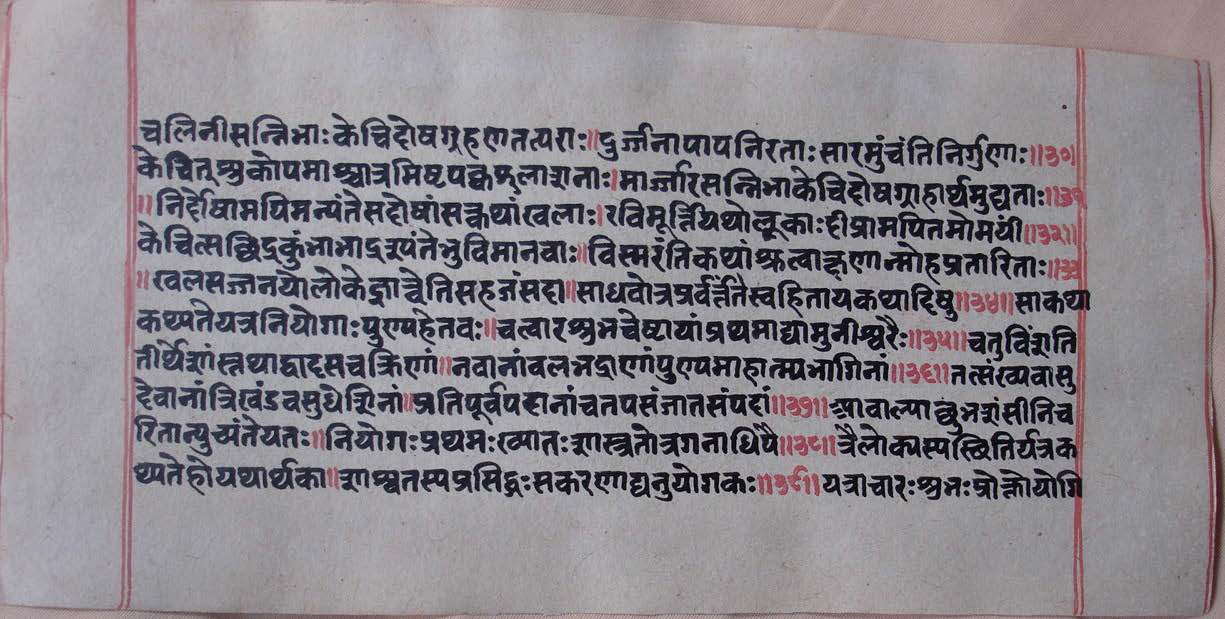 चलिनीसन्निभाः केचिद्दोषगृहणतत्पराः॥दुर्ज्जनापापनिरताः सारमुंचंतिनिर्गुणाः॥३०॥
केचित्शुकोपमाश्चात्रमिष्टपक्वफलाशनाः।मार्ज्जारसन्निभाकेचिद्दोषग्राहार्थमुद्यताः॥३१
॥निर्दोषामपिमन्यंतेसदोषांसत्कथांखलाः।रविमूर्त्तियथोलूकाःदीप्रामपितमोमयीं॥३२॥
केचित्सछिद्रकुंभाभादुरूपंतेभुविमानवाः॥विस्मरंतिकथांश्रुत्वाक्षणान्मोहप्रतारिताः॥३३
॥खलसज्जनयोलोकेद्वावेतिसहजंसदा॥साधवोत्रप्रवर्त्तंतेस्वहितायकथादिषु॥३४॥साकथा
कथ्यतेयत्रनियोगाःपुण्यहेतवः॥चत्वारशुभचेष्टायांप्रथमाद्यामुनीश्वरैः॥३५॥चतुर्विंशति
तीर्थेशांस्तथाद्वादसचक्रिणां॥नवानांवलभद्राणांपुण्यमाहात्म्यभागिनां॥३६॥तत्संख्यवासु
देवानांत्रिखंडवसुधेशिनां॥प्रतिपूर्वपदानांचतपसंजातसंपदां॥३७॥आवाल्याछुभशंसीनिच
रितान्युच्यंतेयतः॥नियोगःप्रथमःख्यातःशास्त्रतोत्रगनाधिपै॥३८॥त्रैलोक्यस्यस्छितिर्यत्रक
थ्यतेहोयथार्थका॥शाश्वतस्यप्रसिद्धःसकरणाद्यनुयोगकः॥३९॥यत्राचारःशुभःप्रोक्तोयोगि